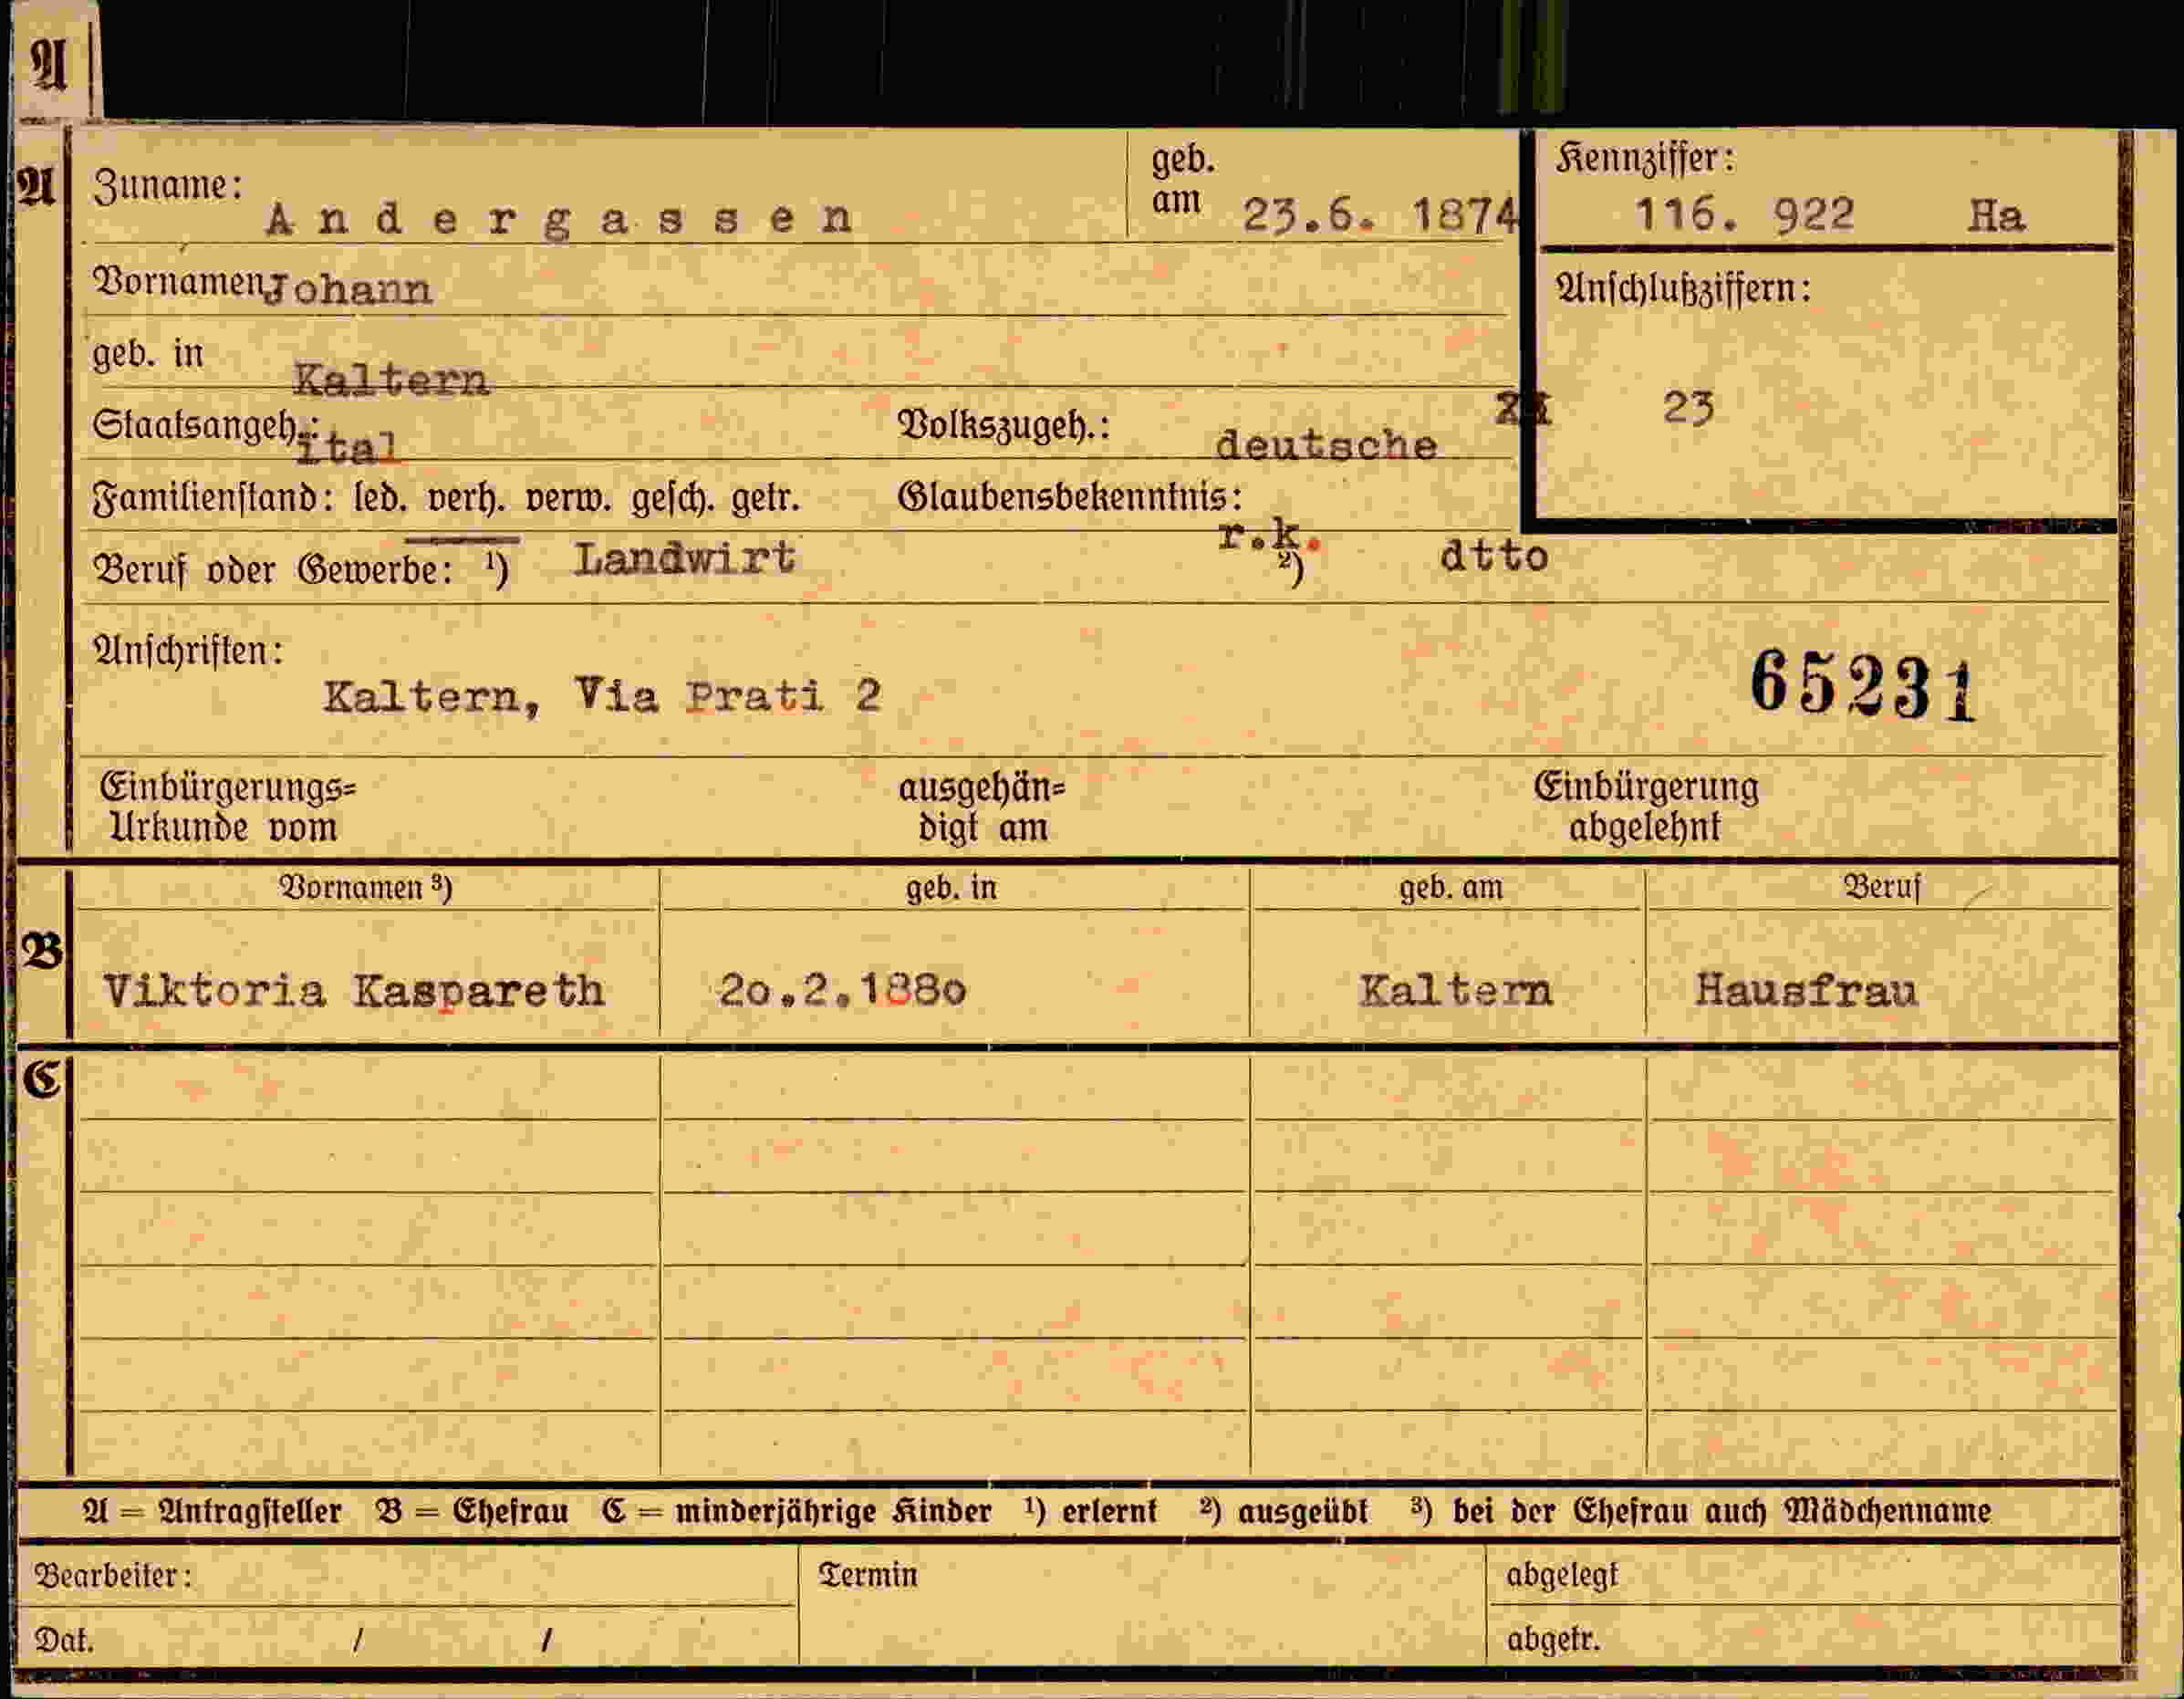 A
A
Zuname: Andergassen
geb. am 23.6. 1874
Kennziffer:
116. 922 Ha
Vornamen Johann
Anschlußziffern:
23
geb. in Kaltern
Staatsangeh.: ital
Volkszugeh.: deutsche
Familienstand: led. verh. verw. gesch. getr.
Glaubensbekenntnis: r.k.
Beruf oder Gewerbe: ¹) Landwirt ²) dtto
Anschriften:
Kaltern, Via Prati 2
65231
Einbürgerungs=
Urkunde vom
ausgehän=
digt am
Einbürgerung
abgelehnt
B
Vornamen ³) geb. in geb. am Beruf
Viktoria Kaspareth 2o.2.188o Kaltern Hausfrau
C
A = Antragsteller B = Ehefrau C = minderjährige Kinder ¹) erlernt ²) ausgeübt ³) bei der Ehefrau auch Mädchenname
Bearbeiter:
Termin
abgelegt
Dat. / /
abgetr.